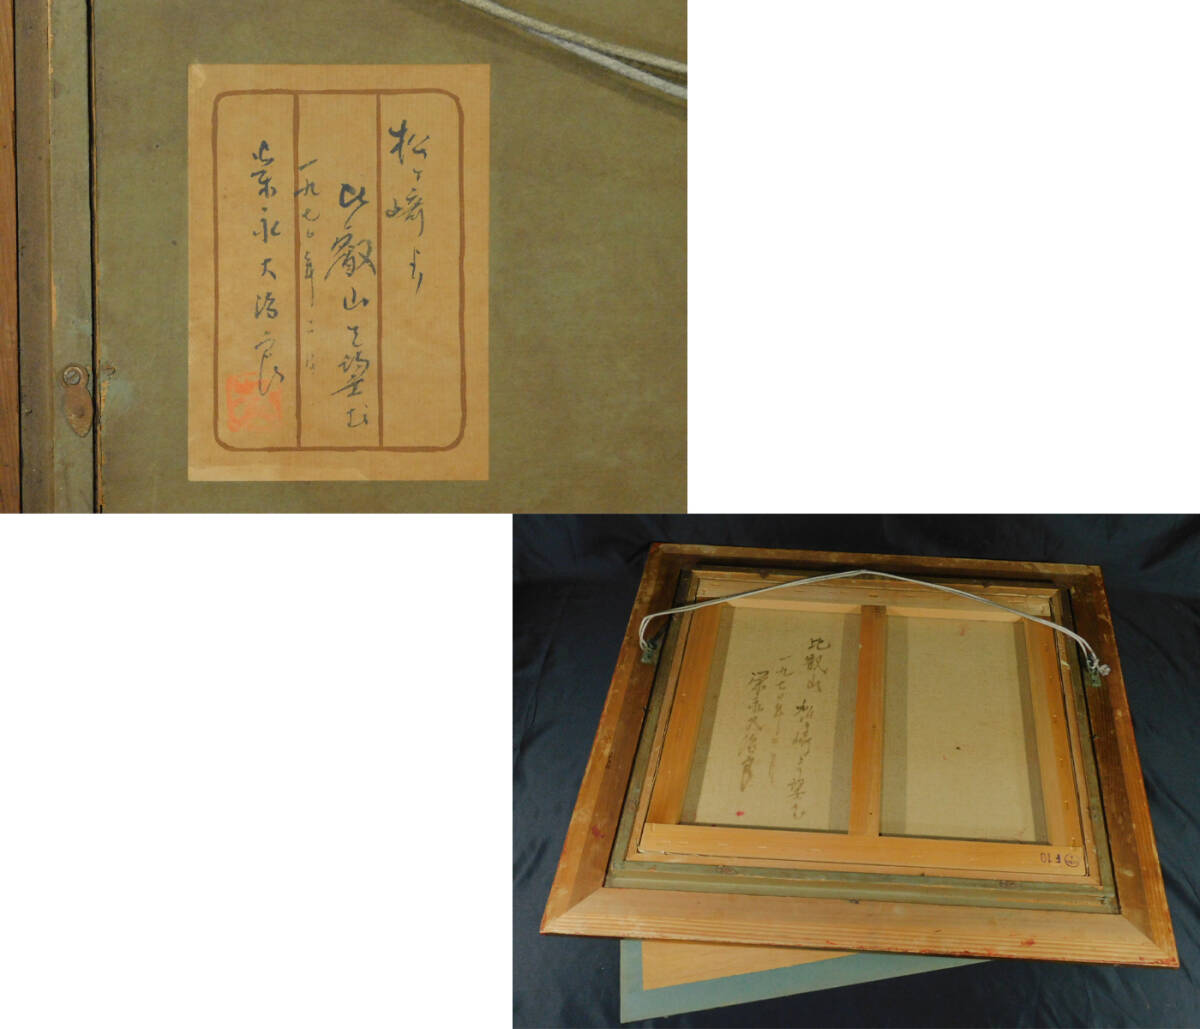 松ヶ崎より
比叡山を望む
一九七〇年十二月
栄永大治良
比叡山 松ヶ崎より望む
一九七〇年十二月
栄永大治良
F10